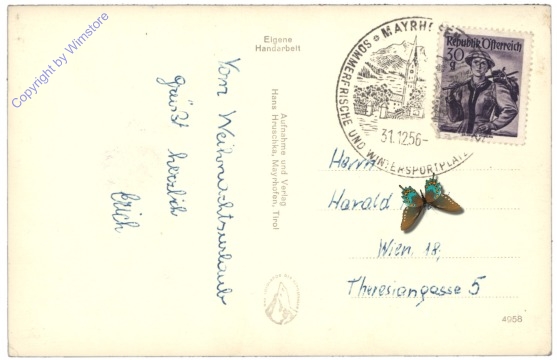 Copyright by Wimstore
Eigene
Handarbeit
Vom Weihnachtsurlaub
grüßt herzlich
Erich
Aufnahme und Verlag
Hans Hruschka, Mayrhofen, Tirol
MAYRHOFEN
SOMMERFRISCHE UND WINTERSPORTPLATZ
31.12.56-
Republik Österreich
30
Herrn
Harald
Wien 18,
Theresiangasse 5
4958